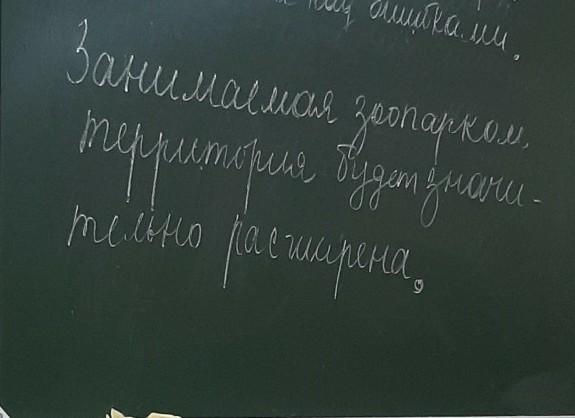 над ошибками.
Занимаемая зоопарком
территория будет значи-
тельно расширена.